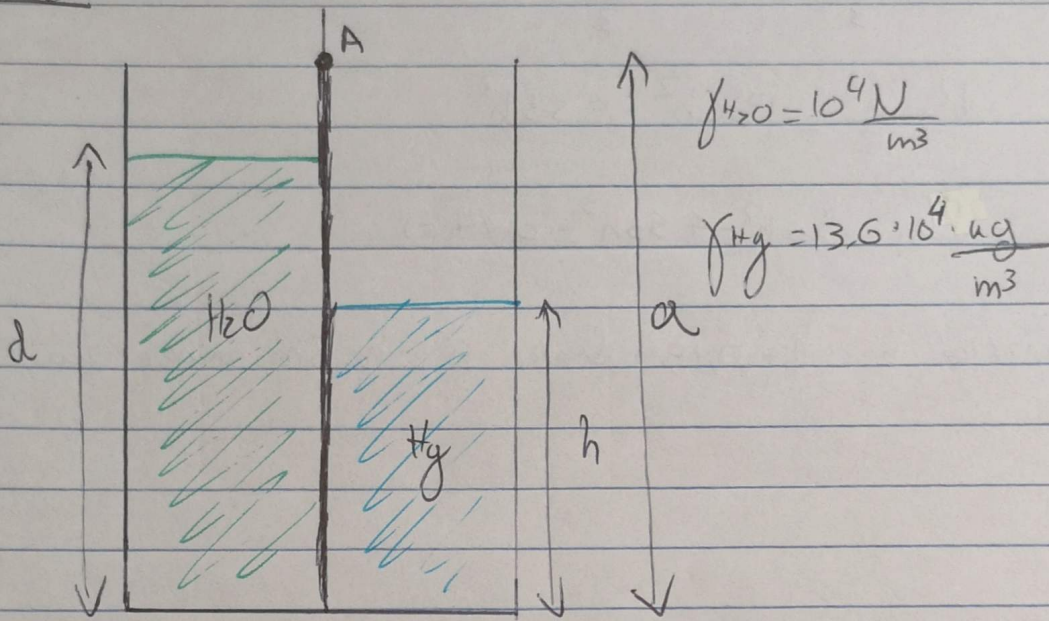 A
γH₂O = 10⁴ N/m³
γHg = 13,6·10⁴· kg/m³
d
H₂O
a
Hg
h